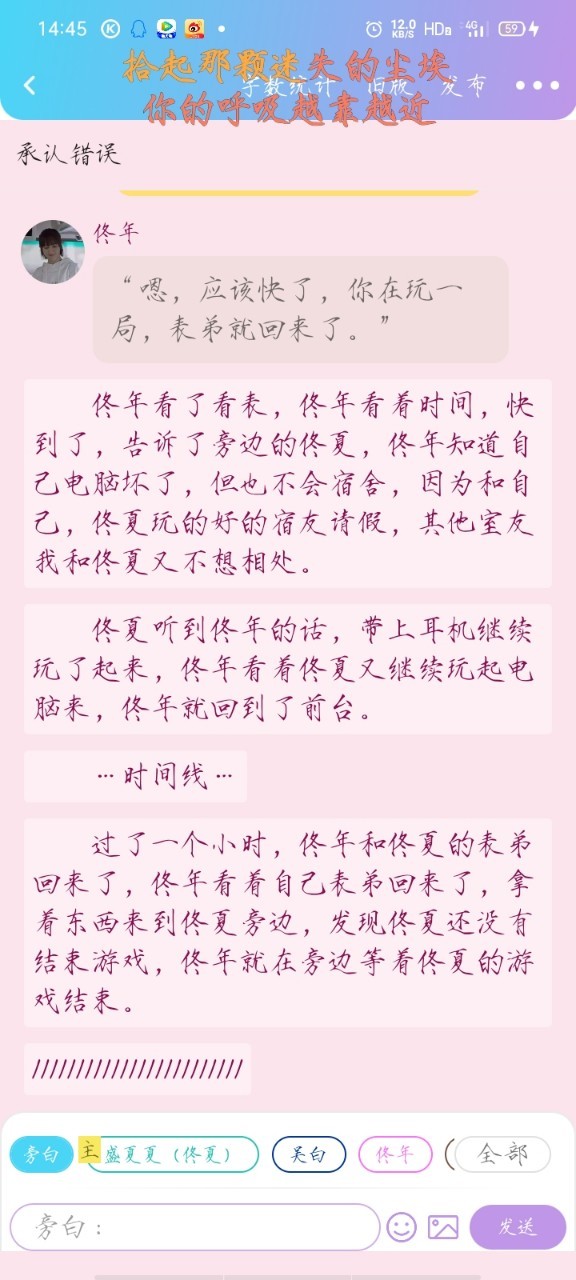 14:45
12.0
KB/S
HD
4G
59
拾起那颗迷失的尘埃
字数统计 旧版 发布
你的呼吸越靠越近
承认错误
佟年
“嗯，应该快了，你在玩一
局，表弟就回来了。”
佟年看了看表，佟年看着时间，快
到了，告诉了旁边的佟夏，佟年知道自
己电脑坏了，但也不会宿舍，因为和自
己，佟夏玩的好的宿友请假，其他室友
我和佟夏又不想相处。
佟夏听到佟年的话，带上耳机继续
玩了起来，佟年看着佟夏又继续玩起电
脑来，佟年就回到了前台。
…时间线…
过了一个小时，佟年和佟夏的表弟
回来了，佟年看着自己表弟回来了，拿
着东西来到佟夏旁边，发现佟夏还没有
结束游戏，佟年就在旁边等着佟夏的游
戏结束。
///////////////////////
旁白 主 盛夏夏（佟夏） 吴白 佟年 全部
旁白：
发送